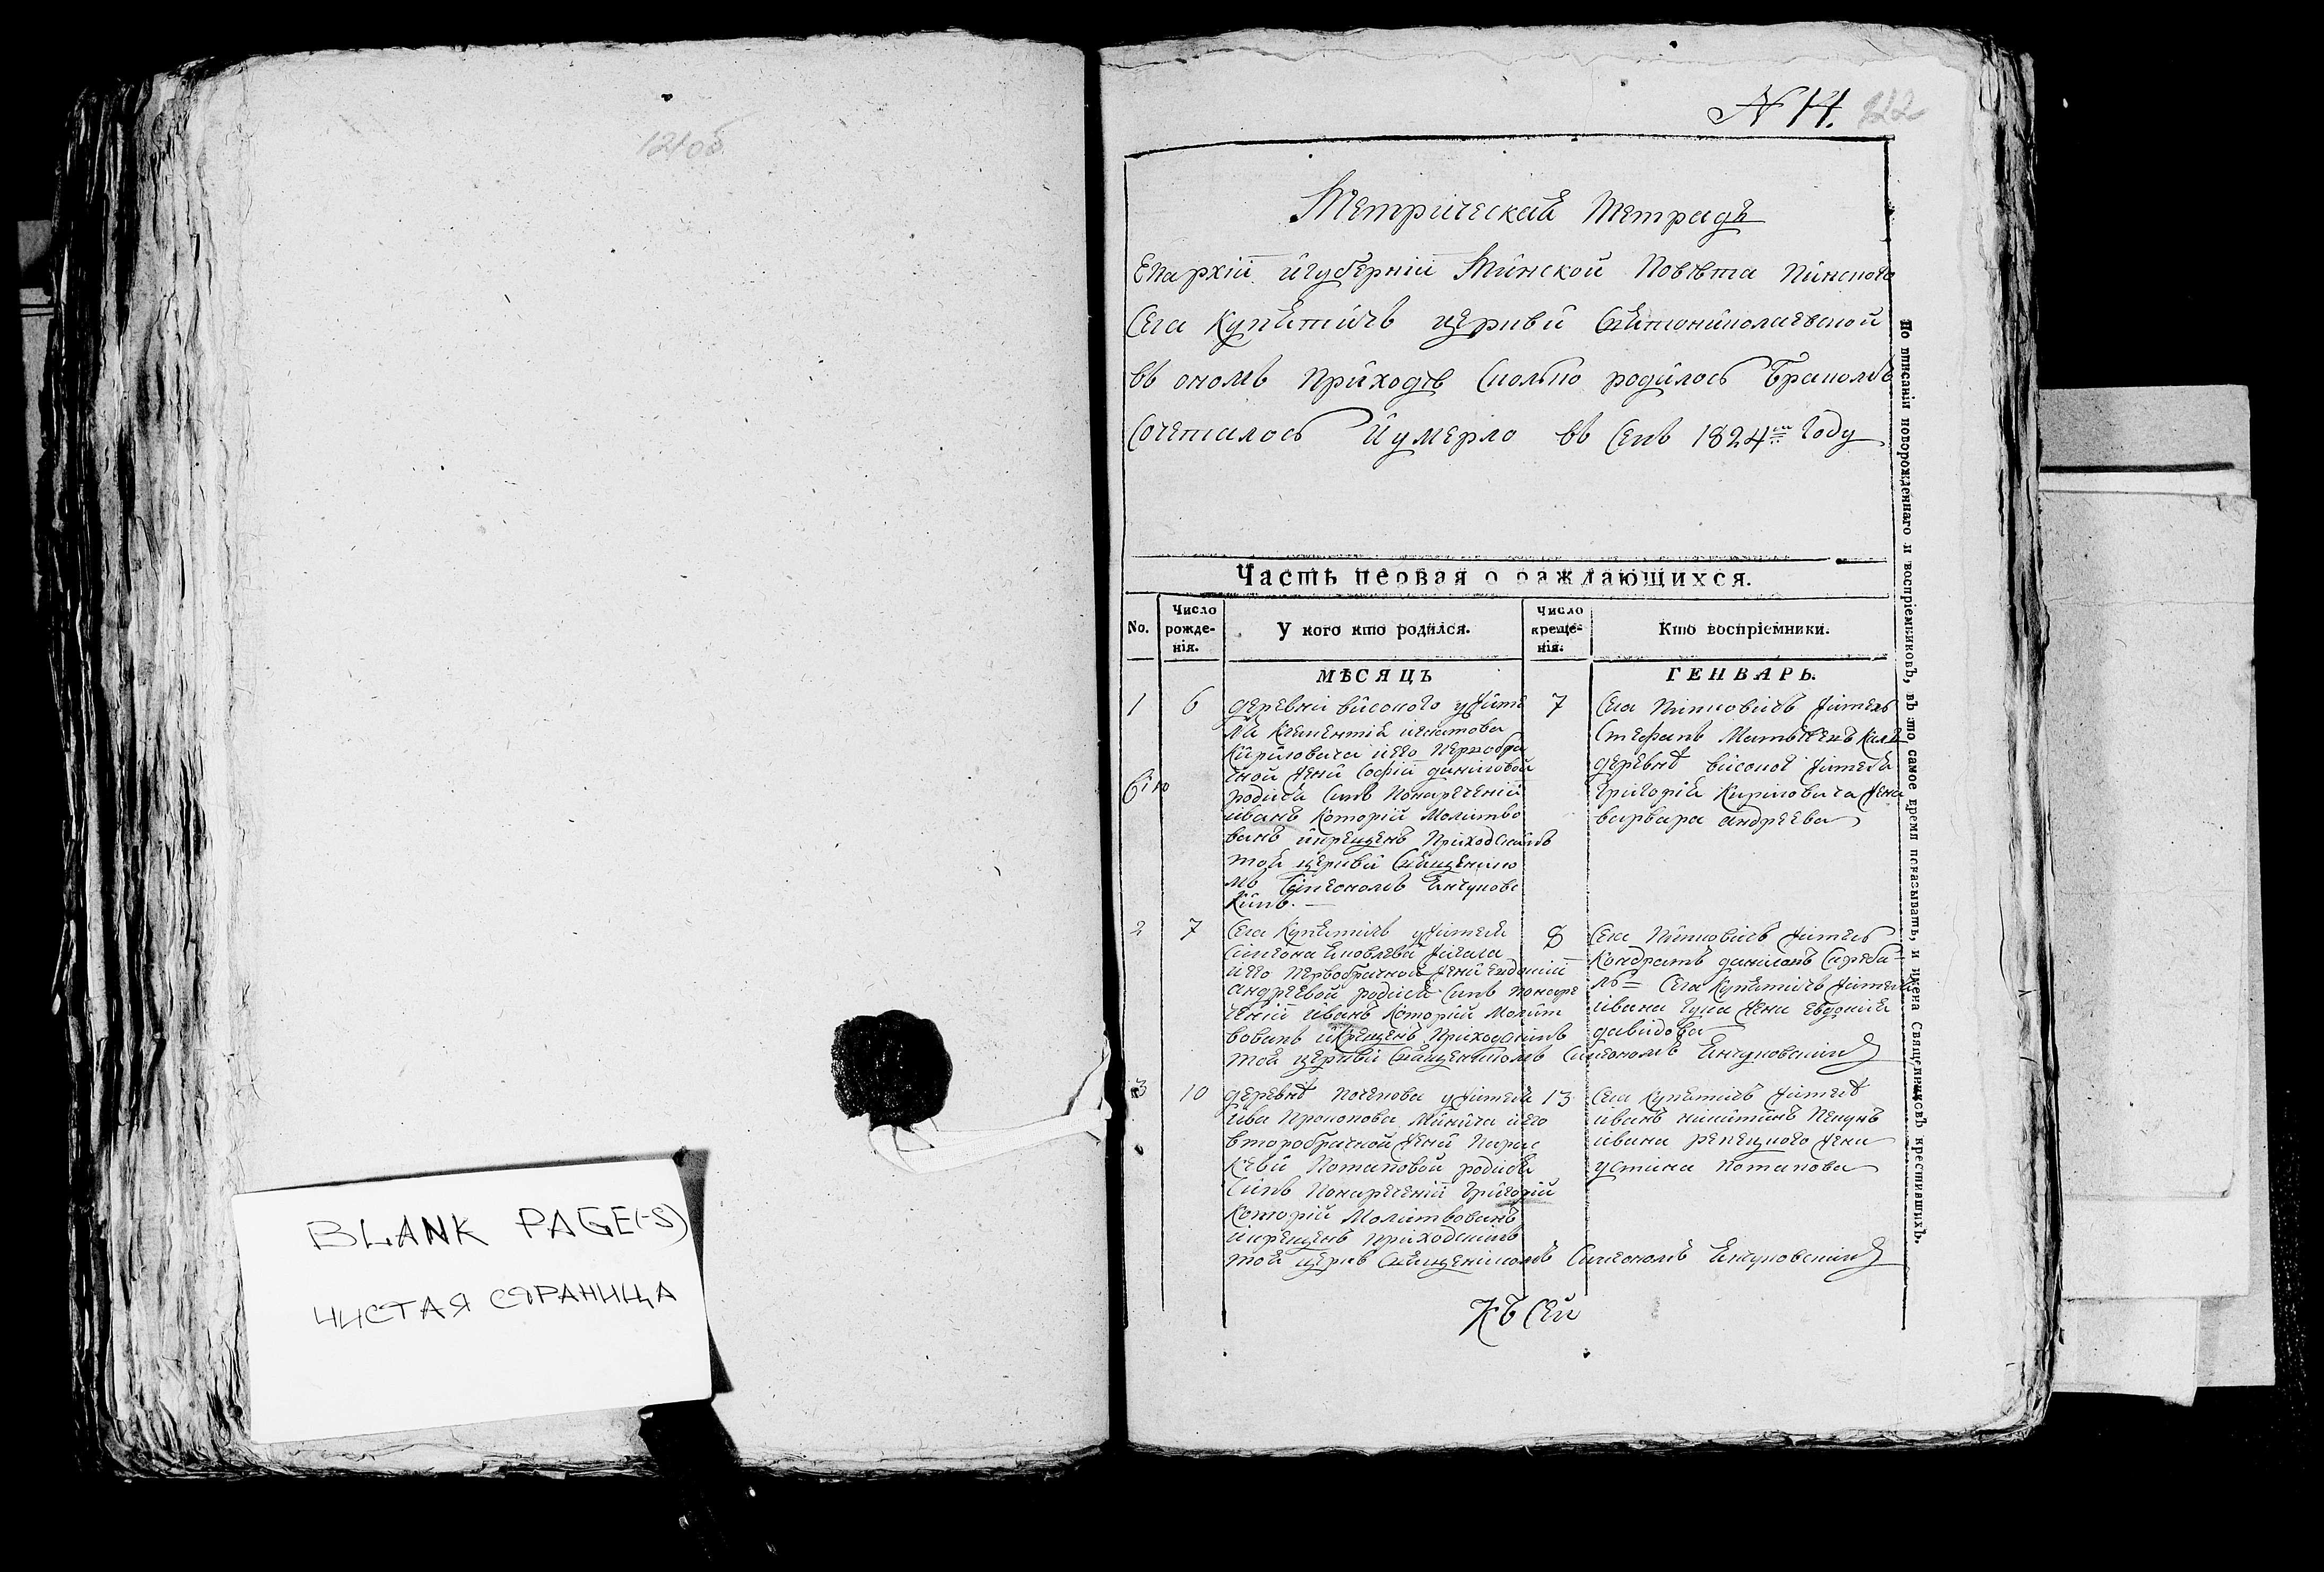 121об
BLANK PAGE(-S)
ЧИСТАЯ СТРАНИЦА
N 14. 122
Метрическая тетрадь
Епархіи и губерніи Минской повѣта Пинского
Села Купятичъ церкви Святониколаевской
въ ономъ приходѣ сколько родилось бракомъ
сочеталось и умерло въ семъ 1824мъ году
Часть первая о раждающихся.
No.
Число рожденія.
У кого кто родился.
Число крещенія.
Кто воспріемники.
МѢСЯЦЪ ГЕНВАРЬ.
1 6 7
деревни високого у жите
ля Климентія игнатова
Кириловича и его первобра
чной жени Софіи даниловой
родися синъ понареченій
иванъ которій молитво
ванъ и крещенъ приходскимъ
той церкви священико
мъ Симеономъ
Села жителъ
Стефанъ
деревнѣ високое жителя
григорія Кириловича жена
варвара андреева
2 7 8
Села Купятичъ у жителя
Симеона Яковлева
и его первобрачной жени
андреевой родися синъ понаре
ченій иванъ которій молит
вованъ и крещенъ приходскимъ
той церкви священикомъ Симеономъ
Села жителъ
Кондратъ даниловъ
Села Купятичъ жителя
ивана жена Евдокія
давидова
3 10 13
деревнѣ у жителя
Прокопова и его
второбрачной жени Парас
кеви Потаповой родися
синъ понареченій григорій
которій молитвованъ
и крещенъ приходскимъ
той церкв священикомъ Симеономъ
Села Купятичъ жителѣ
иванъ никитинъ
ивана жена
устина потапова
Къ сей
По вписаніи новорожденнаго и воспріемниковъ, въ то самое время показывать, и имена Священниковъ крестившихъ.